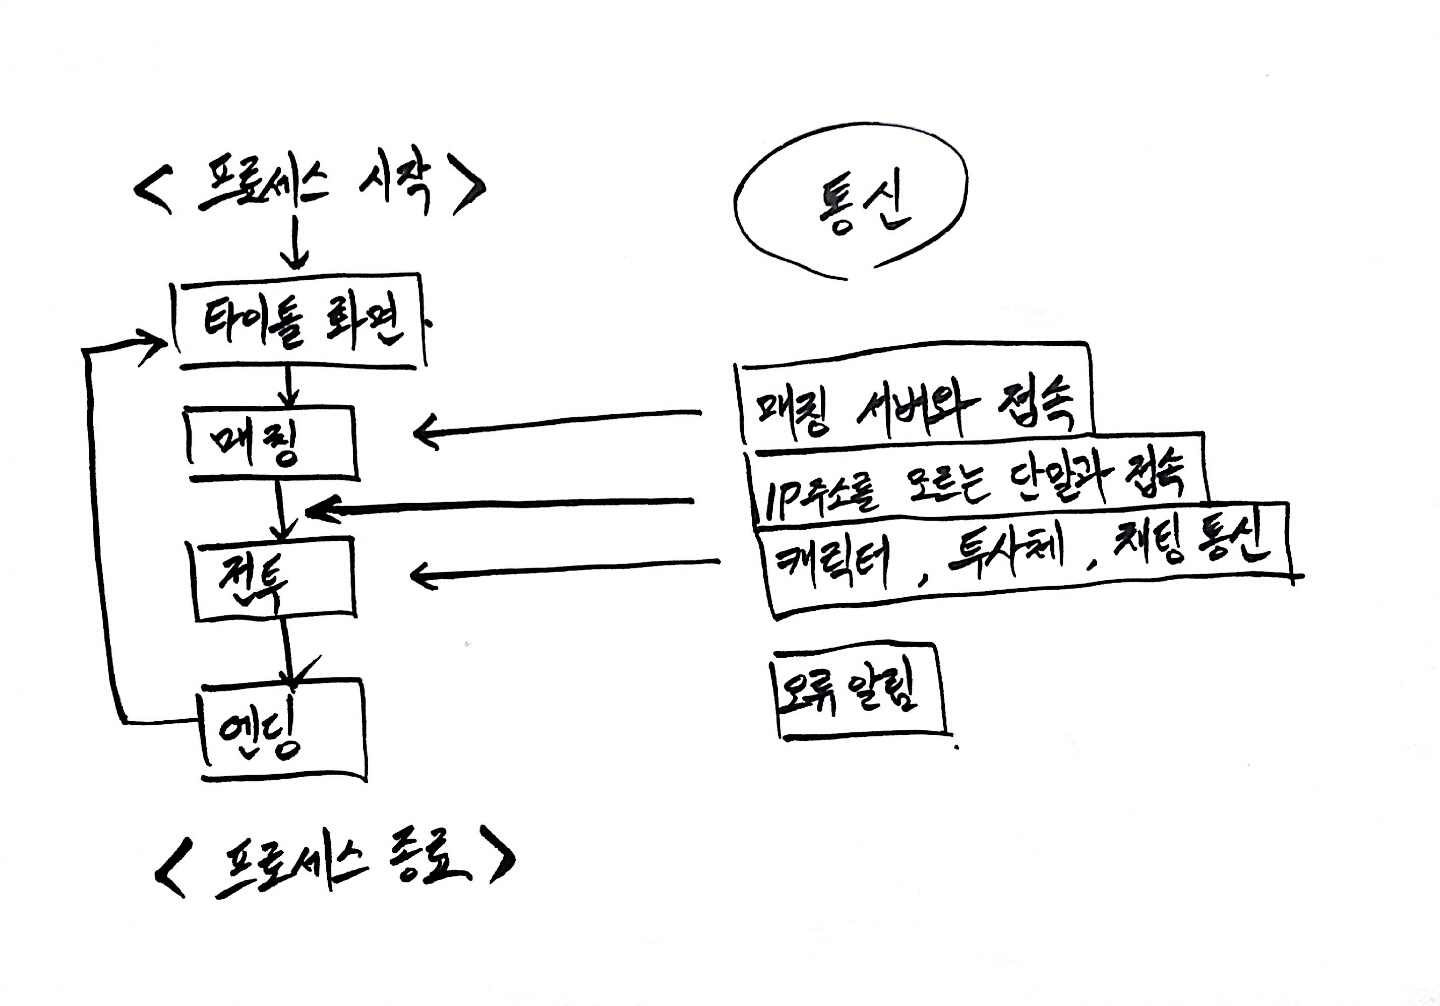 < 프로세스 시작 >
통신
타이틀 화면
매칭
전투
엔딩
< 프로세스 종료 >
매칭 서버와 접속
IP주소를 모르는 단말과 접속
캐릭터, 투사체, 채팅 통신
오류 알림